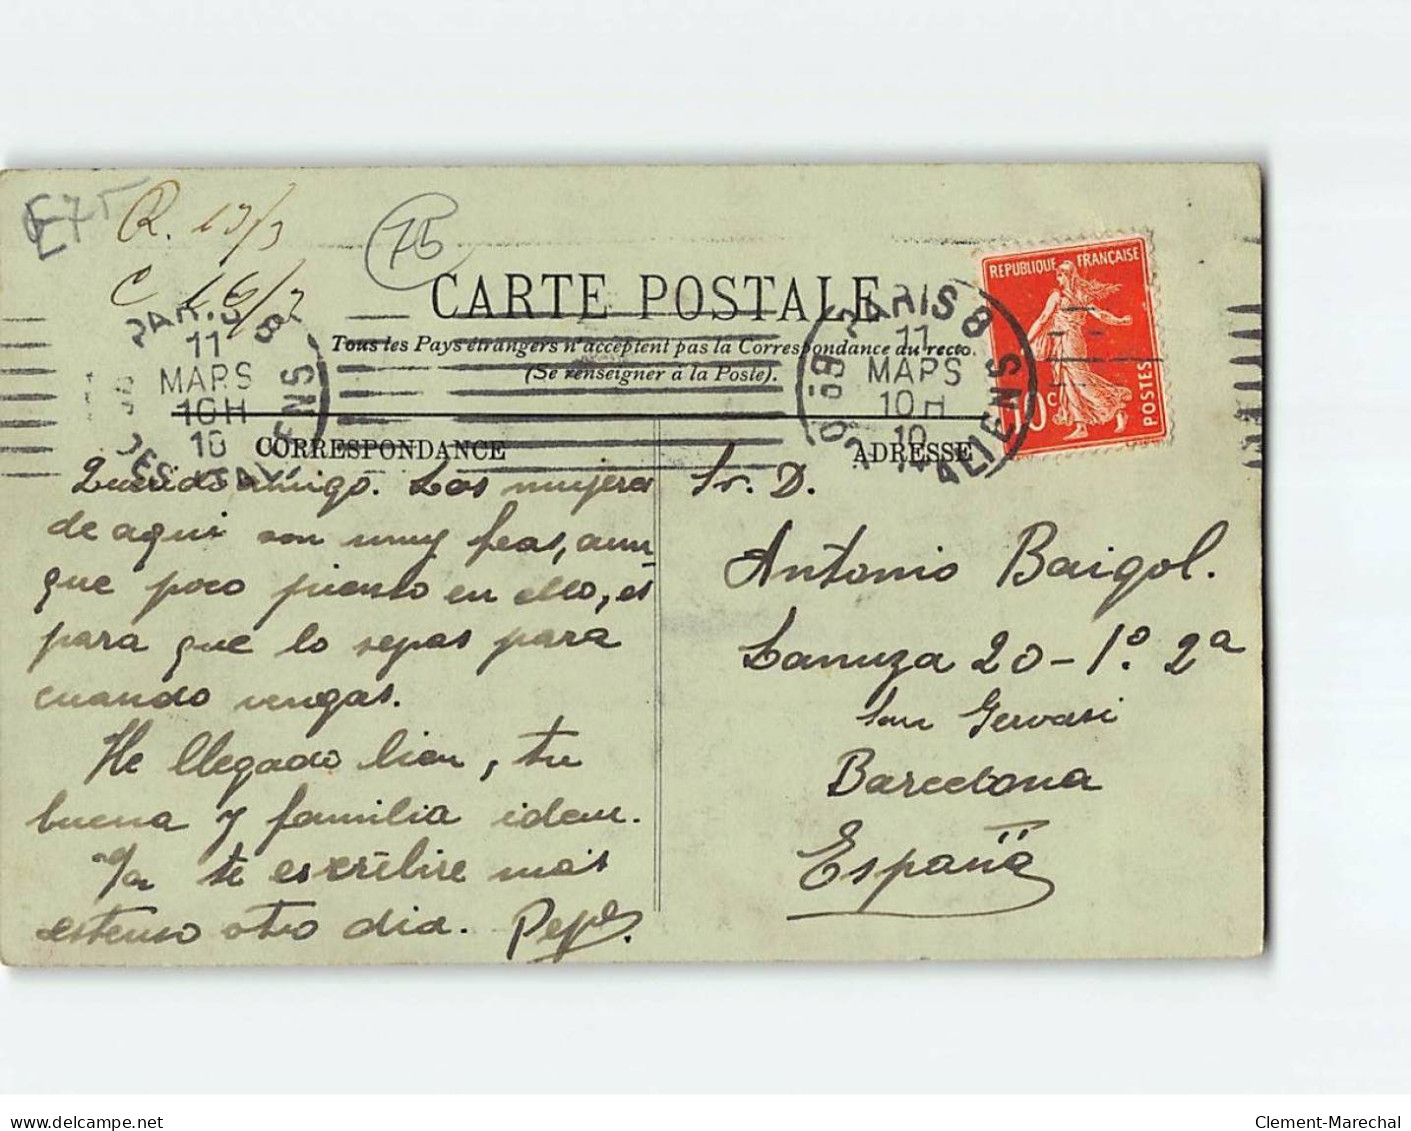 E75
R. 13/3
C 16/3
75
CARTE POSTALE
Tous les Pays étrangers n'acceptent pas la Correspondance au recto.
(Se renseigner à la Poste).
CORRESPONDANCE
ADRESSE
REPUBLIQUE FRANÇAISE
POSTES
10c
PARIS 8
11
MARS
10H
10
PARIS 8
11
MARS
10H
10
Querido amigo. Las mujeres
de aqui son muy feas, aun
que poco pienso en ello, es
para que lo sepas para
cuando vengas.
He llegado bien, tu
buena y familia idem.
Ya te escribire mas
estenso otro dia. Pepe.
Sr. D.
Antonio Baigol.
Lanuza 20-1º. 2ª
San Gervasi
Barcelona
España
www.delcampe.net
Clement-Marechal